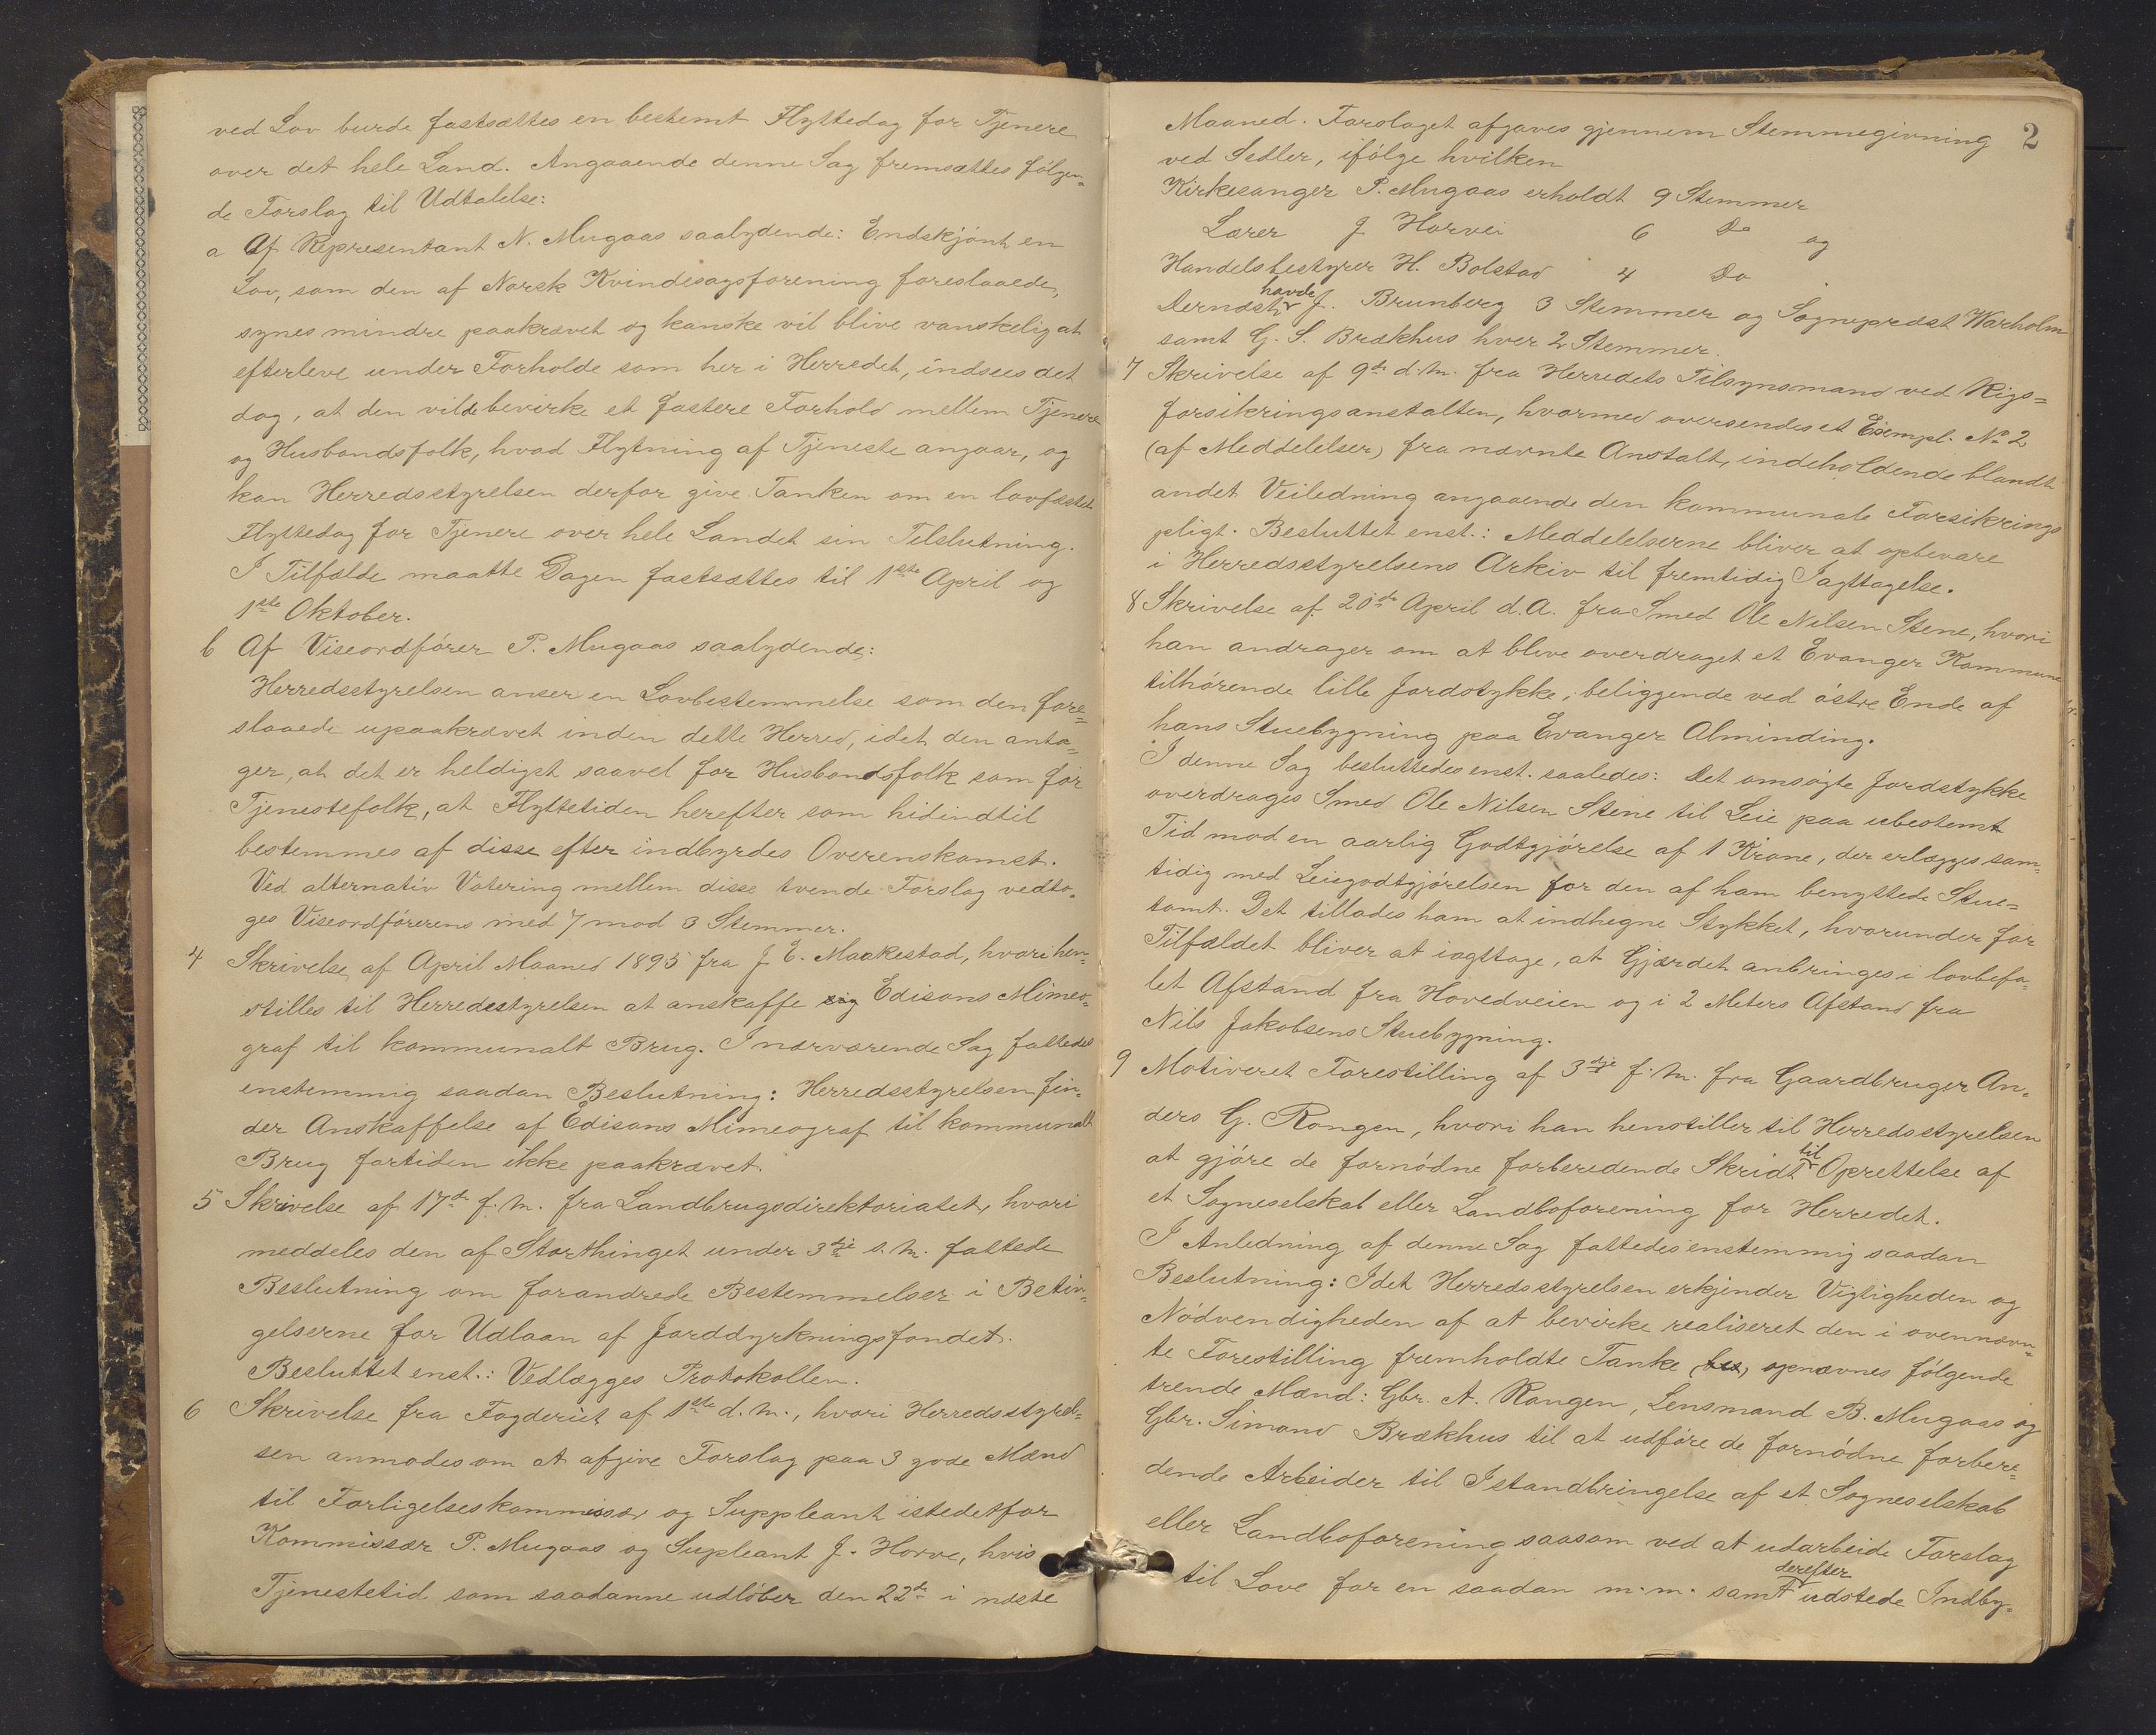 ved Lov burde fastsættes en bestemt Flyttedag for Tjenere
over det hele Land. Angaaende denne Sag fremsattes følgen=
de Forslag til Udtalelse:
a Af Representant N. Mugaas saalydende: Endskjønt en
Lov, som den af Norsk Kvindesagsforening foreslaaede,
synes mindre paakrævet og kanske vil blive vanskelig at
efterleve under Forholde som her i Herredet, indsees det
dog, at den vilde bevirke et fastere Forhold mellem Tjenere
og Husbondsfolk, hvad Flytning af Tjeneste angaar, og
kan Herredsstyrelsen derfor give Tanken om en lovfæstet
Flyttedag for Tjenere over hele Landet sin Tilslutning.
I Tilfælde maatte Dagen fastsættes til 1ste April og
1ste Oktober.
b Af Viseordfører P. Mugaas saalydende:
Herredsstyrelsen anser en Lovbestemmelse som den fore=
slaaede upaakrævet inden dette Herred, idet den anta=
ger, at det er heldigst saavel for Husbondsfolk som for
Tjenestefolk, at Flyttetiden herefter som hidindtil
bestemmes af disse efter indbyrdes Overenskomst.
Ved alternativ Votering mellem disse tvende Forslag vedto=
ges Viseordførerens med 7 mod 3 Stemmer.
4 Skrivelse af April Maaned 1895 fra J. E. Maakestad, hvori hen=
stilles til Herredsstyrelsen at anskaffe sig Edisons Mimeo=
graf til kommunalt Brug. I nærværende Sag fattedes
enstemmig saadan Beslutning: Herredsstyrelsen fin=
der Anskaffelse af Edisons Mimeograf til kommunalt
Brug fortiden ikke paakrævet.
5 Skrivelse af 17de f. M. fra Landbrugsdirektoriatet, hvori
meddeles den af Storthinget under 3dje s. M. fattede
Beslutning om forandrede Bestemmelser i Betin=
gelserne for Udlaan af Jorddyrkningsfondet.
Besluttet enst.: Vedlægges Protokollen.
6 Skrivelse fra Fogderiet af 1ste d. M., hvori Herredsstyrel=
sen anmodes om at afgive Forslag paa 3 gode Mænd
til Forligelseskommissær og Suppleant istedetfor
Kommissær P. Mugaas og Supleant J. Horve, hvis
Tjenestetid som saadanne udløber den 22de i næste
2
Maaned. Forslaget afgaves gjennem Stemmegivning
ved Sedler, ifølge hvilken
Kirkesanger P. Mugaas erholdt 9 Stemmer
Lærer J Horvei 6 Do og
Handelsbestyrer H. Bolstad 4 Do.
Dernæst havde J. Brunberg 3 Stemmer og Sogneprest Warholm
samt G. S. Brækhus hver 2 Stemmer.
7 Skrivelse af 9de d. M. fra Herredets Tilsynsmand ved Rigs=
forsikringsanstalten, hvormed oversendes et Exempl. No 2
(af Meddelelser) fra nævnte Anstalt, indeholdende blandt
andet Veiledning angaaende den kommunale Forsikrings
pligt. Besluttet enst.: Meddelelserne bliver at opbevare
i Herredsstyrelsens Arkiv til fremtidig Iagttagelse.
8 Skrivelse af 20de April d. A. fra Smed Ole Nilsen Stene, hvori
han andrager om at blive overdraget et Evanger Kommune
tilhørende lille Jordstykke, beliggende ved østre Ende af
hans Stuebygning paa Evanger Alminding.
I denne Sag besluttedes enst. saaledes: Det omsøgte Jordstykke
overdrages Smed Ole Nilsen Stene til Leie paa ubestemt
Tid mod en aarlig Godtgjørelse af 1 Krone, der erlægges sam=
tidig med Leiegodtgjørelsen for den af ham benyttede Stue=
tomt. Det tillades ham at indhegne Stykket, hvorunder for
Tilfældet bliver at iagttage, at Gjærdet anbringes i lovbefa=
let Afstand fra Hovedveien og i 2 Meters Afstand fra
Nils Jakobsens Stuebygning.
9 Motiveret Forestilling af 3dje f. M. fra Gaardbruger An=
ders G. Rongen, hvori han henstiller til Herredsstyrelsen
at gjøre de fornødne forberedende Skridt til Oprettelse af
et Sogneselskab eller Landboforening for Herredet.
I Anledning af denne Sag fattedes enstemmig saadan
Beslutning: Idet Herredsstyrelsen erkjender Vigtigheden og
Nødvendigheden af at bevirke realiseret den i ovennævn=
te Forestilling fremholdte Tanke, opnævnes følgende
trende Mænd: Gbr. A. Rongen, Lensmand B. Mugaas og
Gbr. Simond Brækhus til at udføre de fornødne forbere=
dende Arbeider til Istandbringelse af et Sogneselskab
eller Landboforening saasom ved at udarbeide Forslag
til Love for en saadan m. m. samt derefter udstede Indby=